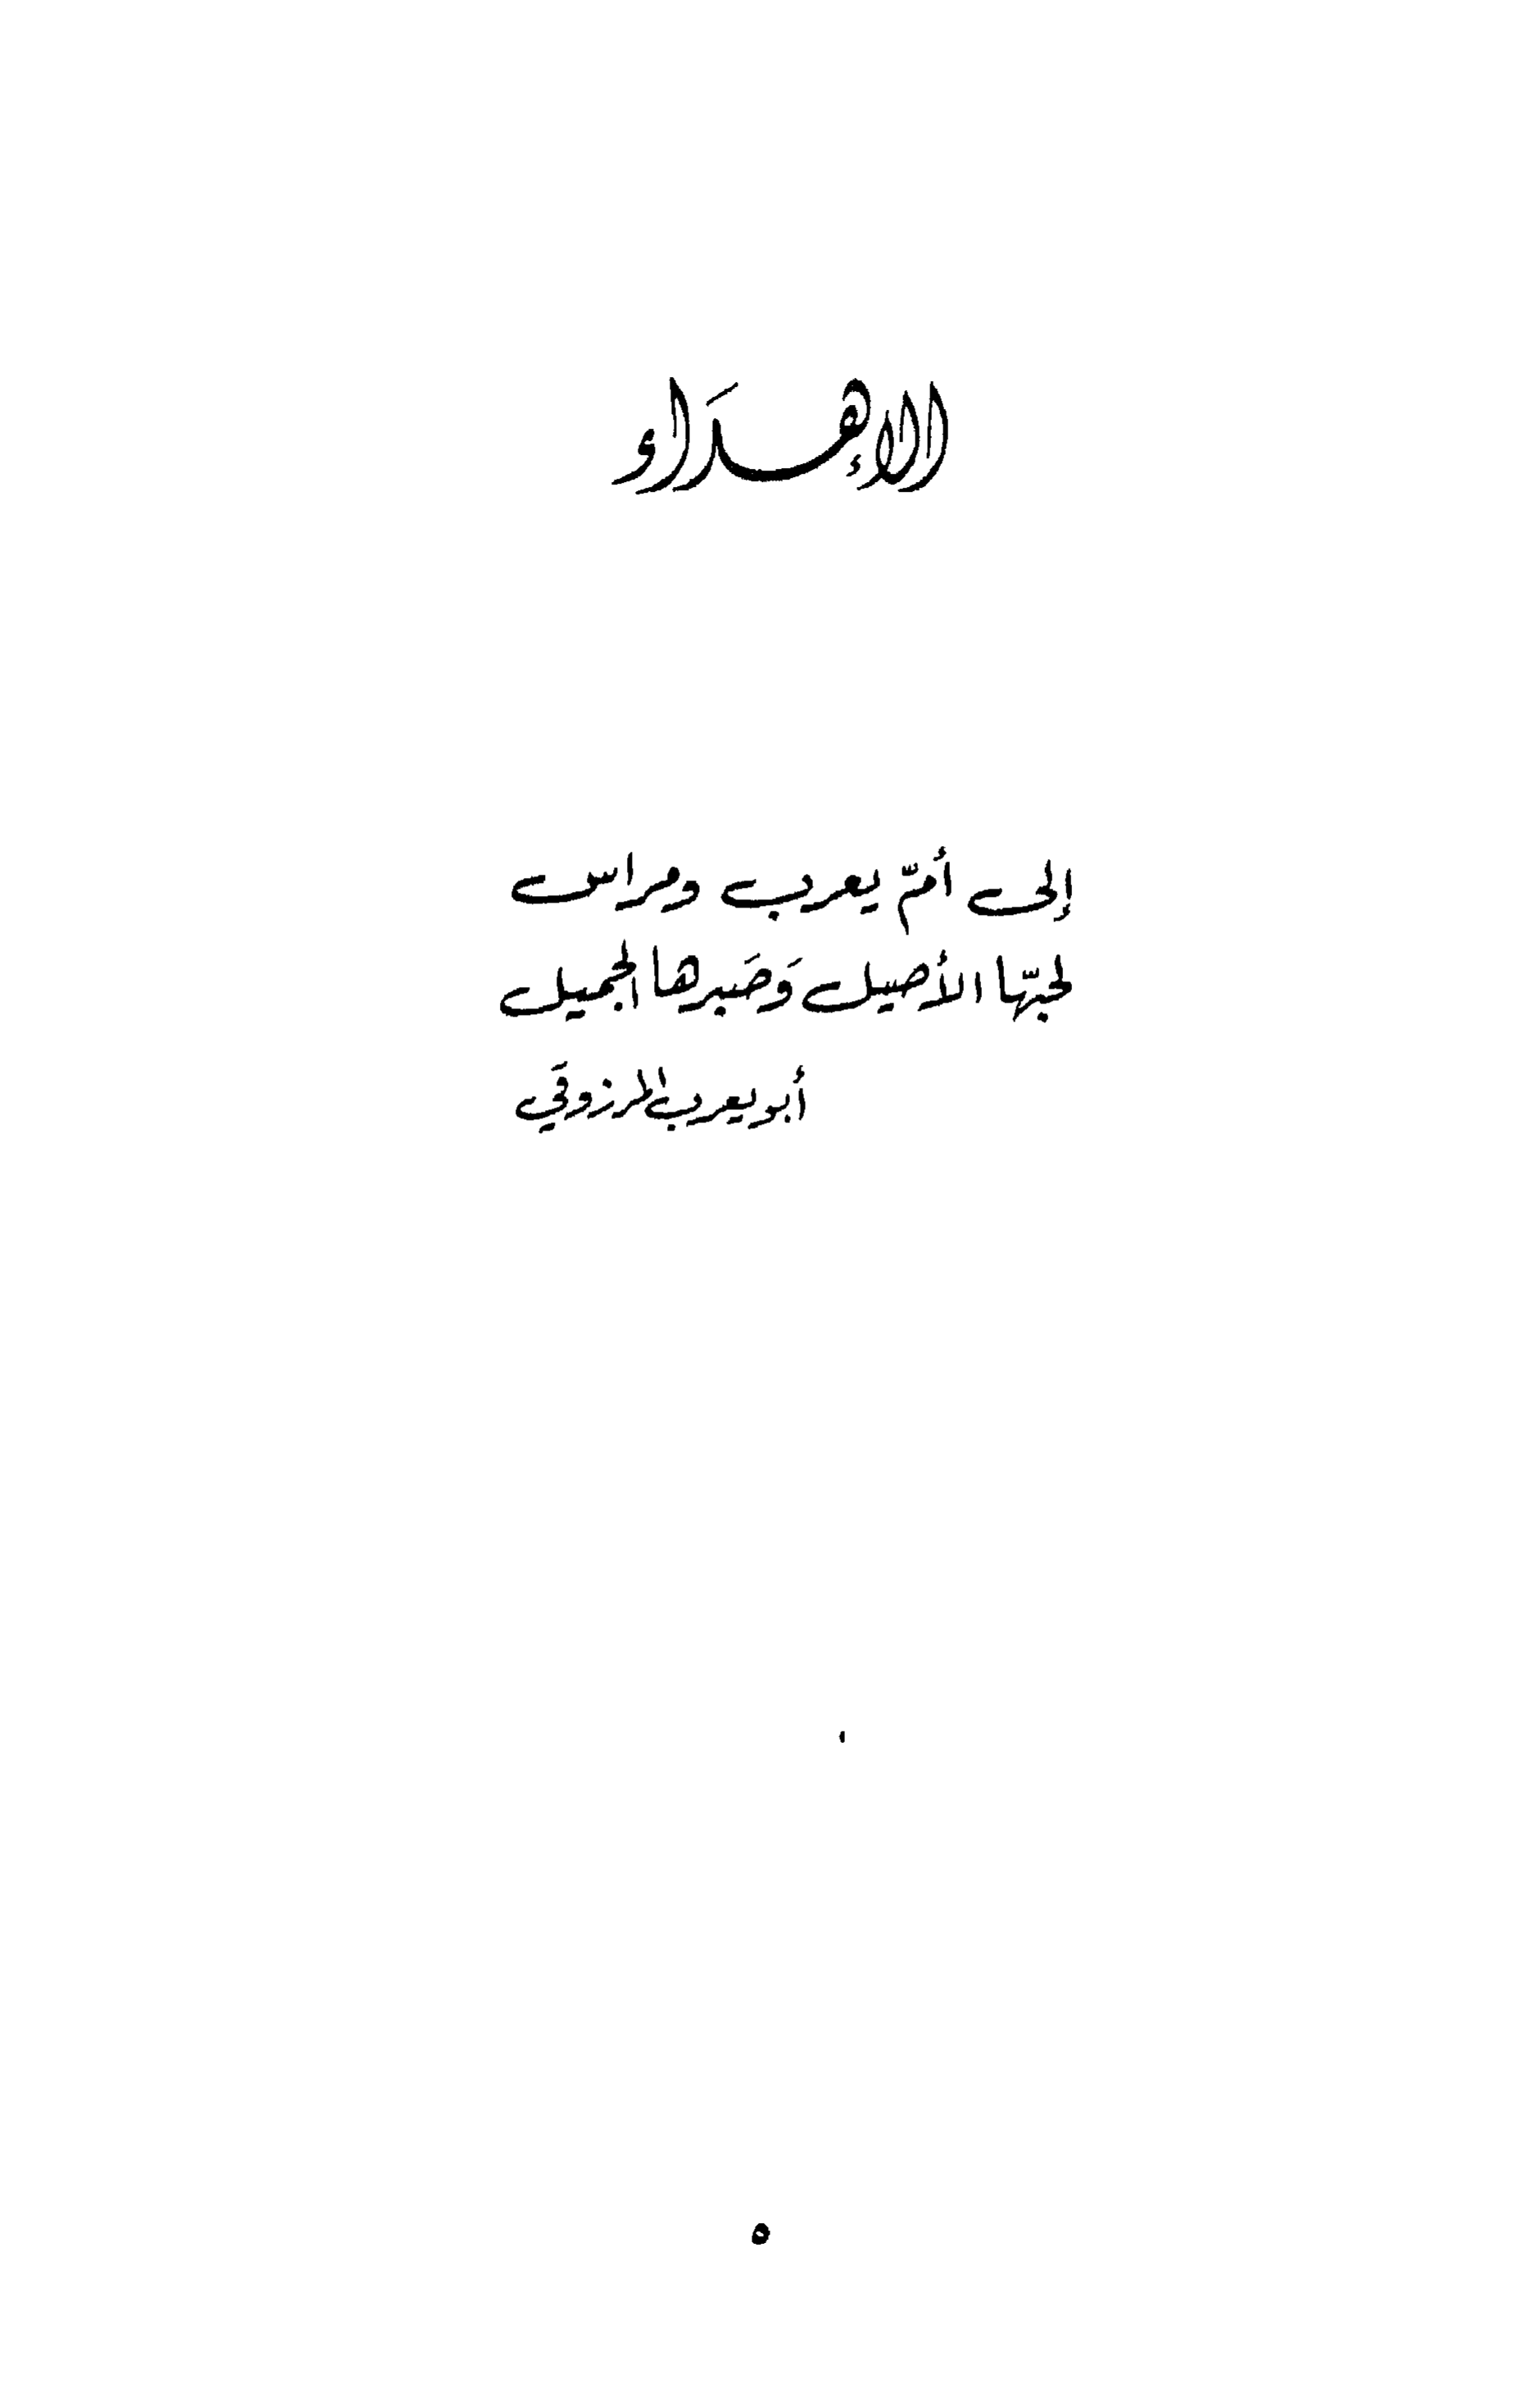 الإهدَاء
إلى أمّ يعرب ومراس
لحبّها الأصيل وَصَبرها الجميل
أبو يعرب المرزوقَي
٥